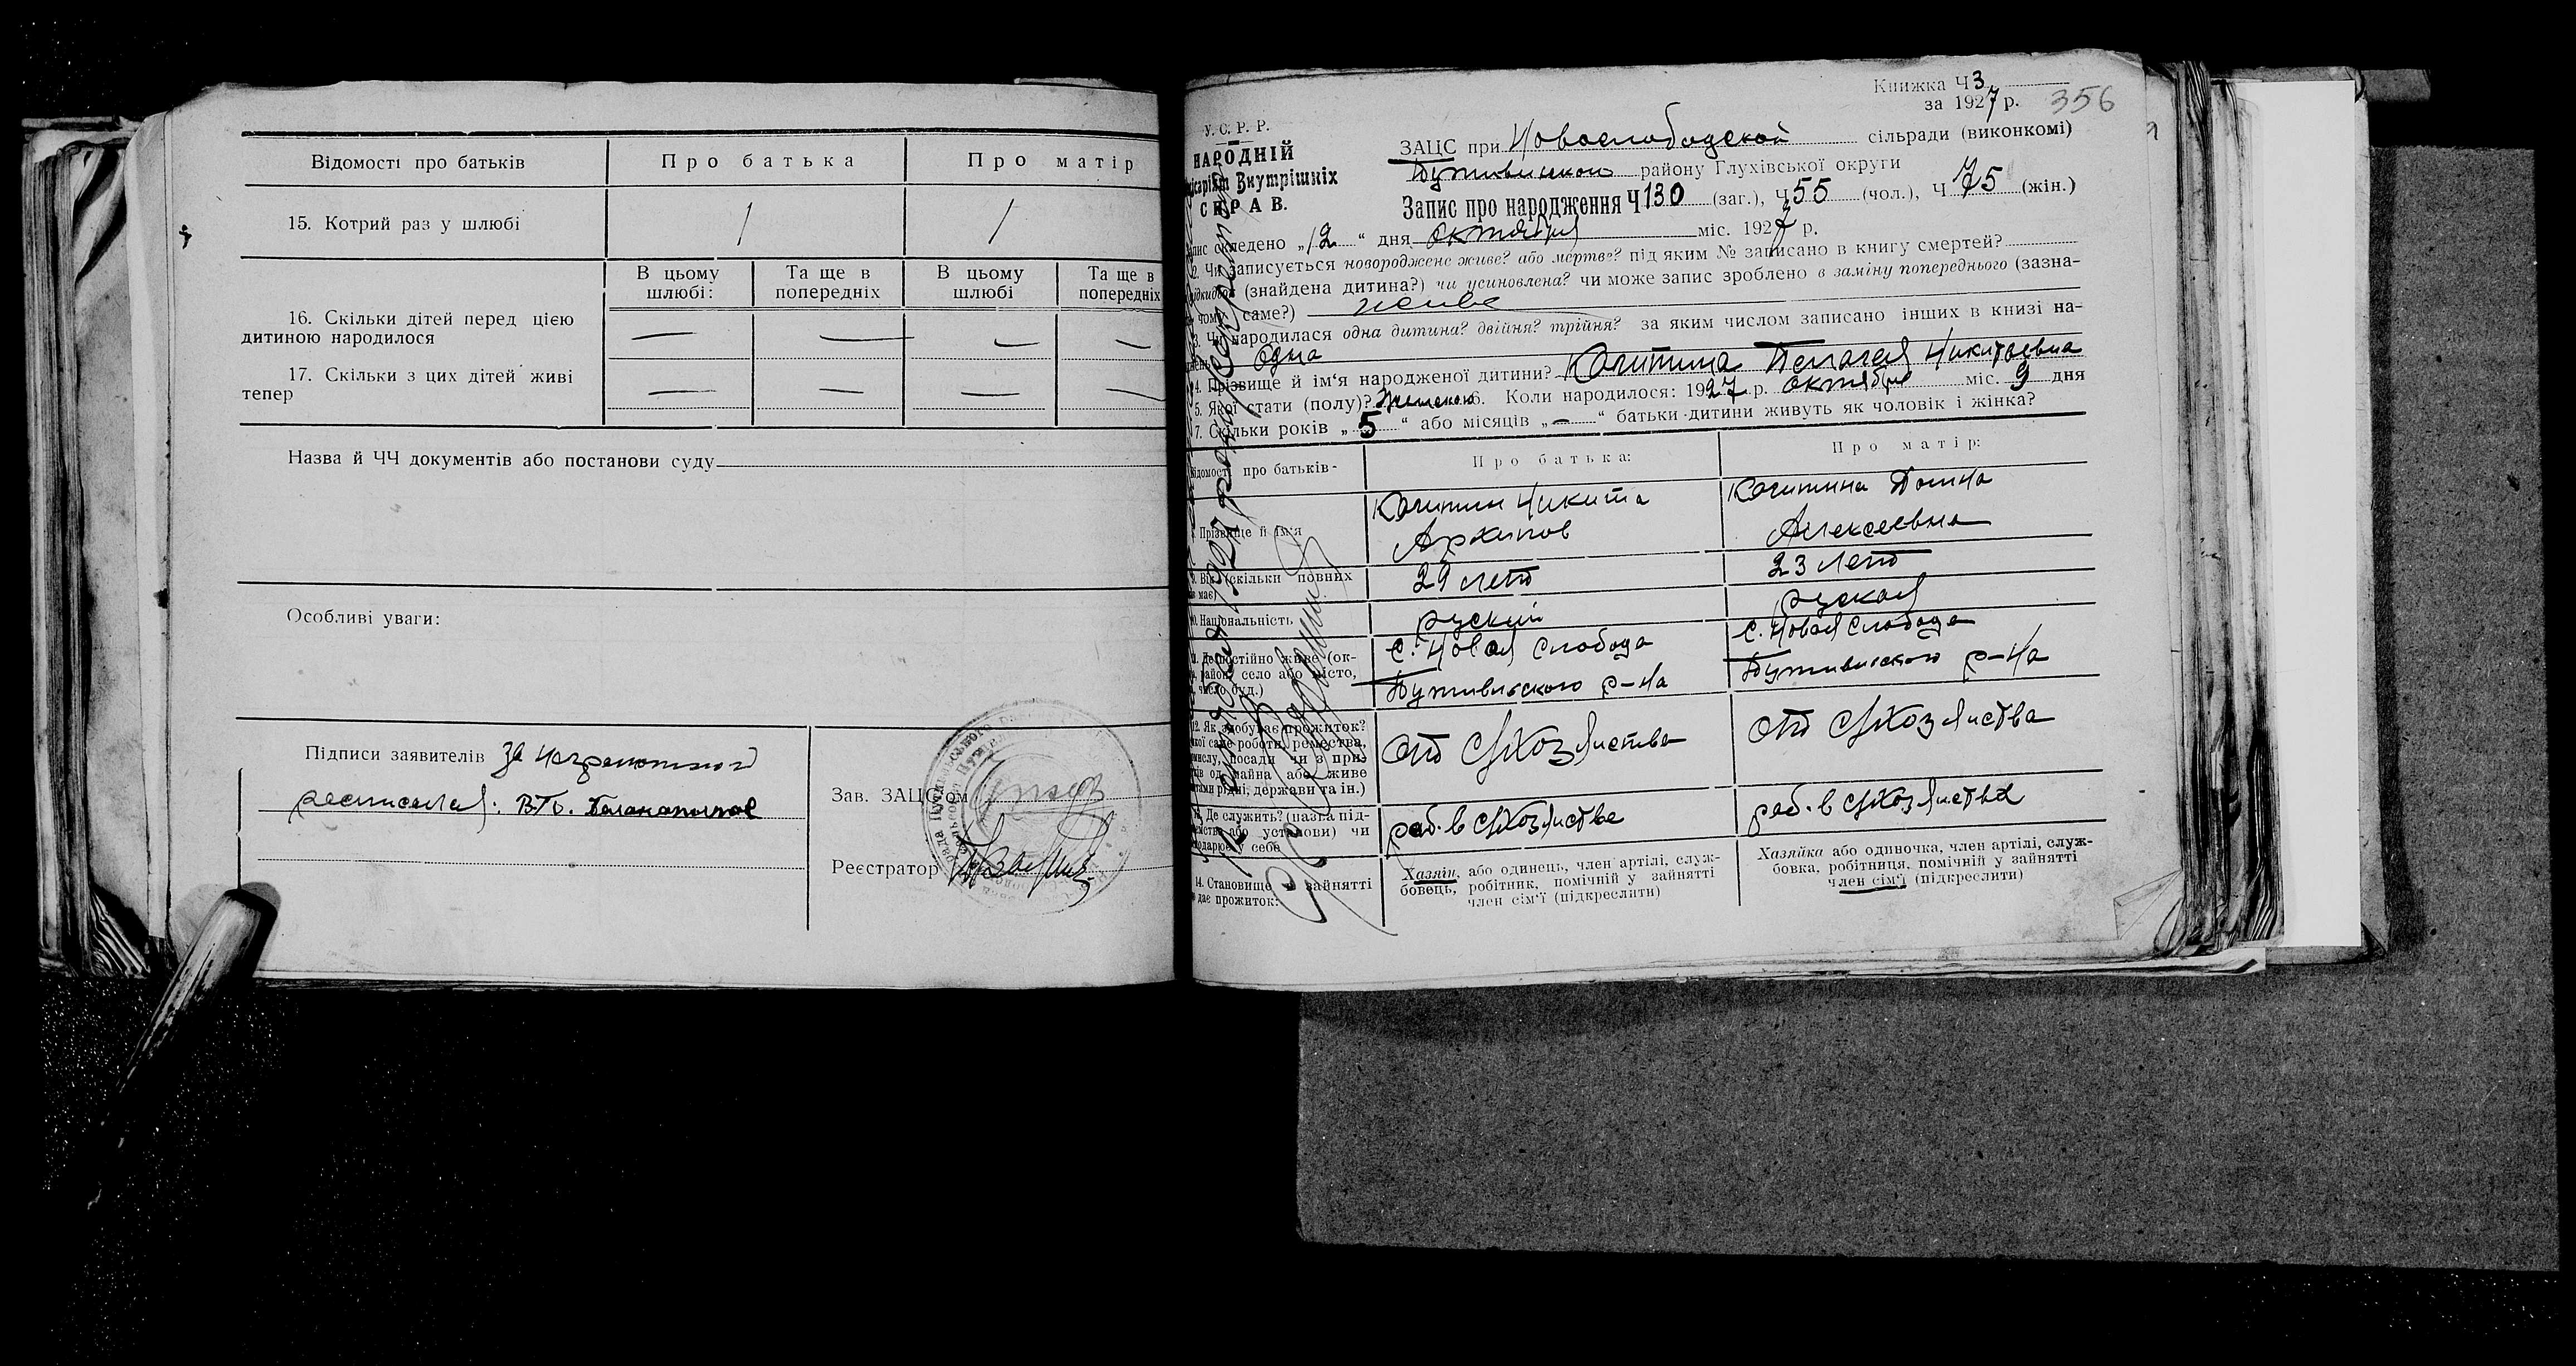 Відомості про батьків
Про батька
Про матір
15. Котрий раз у шлюбі
1
1
В цьому шлюбі:
Та ще в попередніх
В цьому шлюбі
Та ще в попередніх
16. Скільки дітей перед цією
дитиною народилося
— — — —
17. Скільки з цих дітей живі
тепер
— — — —
Назва й ЧЧ документів або постанови суду
Особливі уваги:
Підписи заявителів За
Зав. ЗАЦС'ом
Реєстратор
Книжка Ч 3
за 1927 р. 356
У. С. Р. Р.
НАРОДНІЙ
Внутрішніх
СПРАВ.
ЗАЦС при Новослободской сільради (виконкомі)
Путивльского району Глухівської округи
Запис про народження Ч 130 (заг.), Ч 55 (чол.), Ч 75 (жін.)
складено „12“ дня октября міс. 1927 р.
2. Чи записується новороджене живе? або мертве? під яким № записано в книгу смертей?
(знайдена дитина?) чи усиновлена? чи може запис зроблено в заміну попереднього (зазна-
чому саме?) живе
3. Чи народилася одна дитина? двійня? трійня? за яким числом записано інших в книзі на-
Одна
4. Прізвище й ім'я народженої дитини? Пелагея Никитовна
5. Якої стати (полу)? Женского 6. Коли народилося: 1927 р. октября міс. 9 дня
7. Скільки років „5“ або місяців „—“ батьки дитини живуть як чоловік і жінка?
Відомості про батьків-
Про батька:
Про матір:
Прізвище й ім'я
Никита
Архипов
Домна
Алексеевна
9. Вік (скільки повних
має)
29 лет
23 лет
10. Національність
руский
руская
11. Де постійно живе (ок-
район, село або місто,
число буд.)
с. Новая Слобода
Путивльского р-на
с. Новая Слобода
Путивльского р-на
12. Як здобуває прожиток?
якої саме роботи, ремества,
посади чи з при-
од майна або живе
рідні, держави та ін.)
от с/хозяиства
от с/хозяиства
Де служить? (назва під-
або установи) чи
у себе
раб. в с/хозяистве
раб. в с/хозяистве
14. Становище в зайнятті
дає прожиток:
Хазяїн, або одинець, член артілі, служ-
бовець, робітник, помічній у зайнятті
член сім'ї (підкреслити)
Хазяйка або одиночка, член артілі, служ-
бовка, робітниця, помічній у зайнятті
член сім'ї (підкреслити)